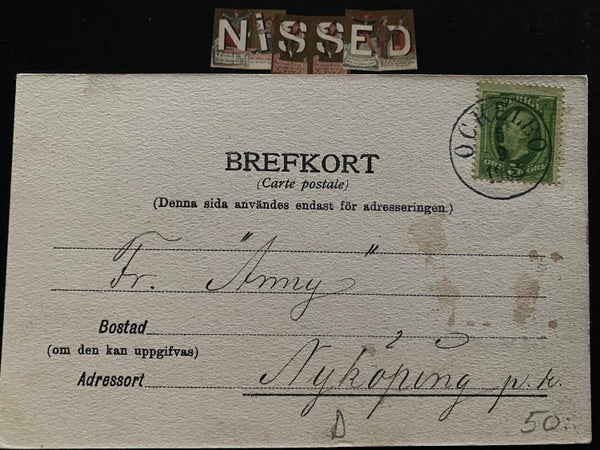 NiSSED
OCKELBO
SVERIGE
BREFKORT
(Carte postale)
(Denna sida användes endast för adresseringen.)
Fr. "Anny"
Bostad
(om den kan uppgifvas)
Adressort
Nyköping p.r.
D
50:-